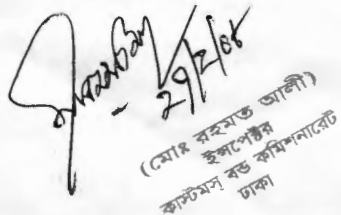 ২৭/২/০৮
(মোঃ রহমত আলী)
ইন্সপেক্টর
কাস্টমস্ বন্ড কমিশনারেট
ঢাকা